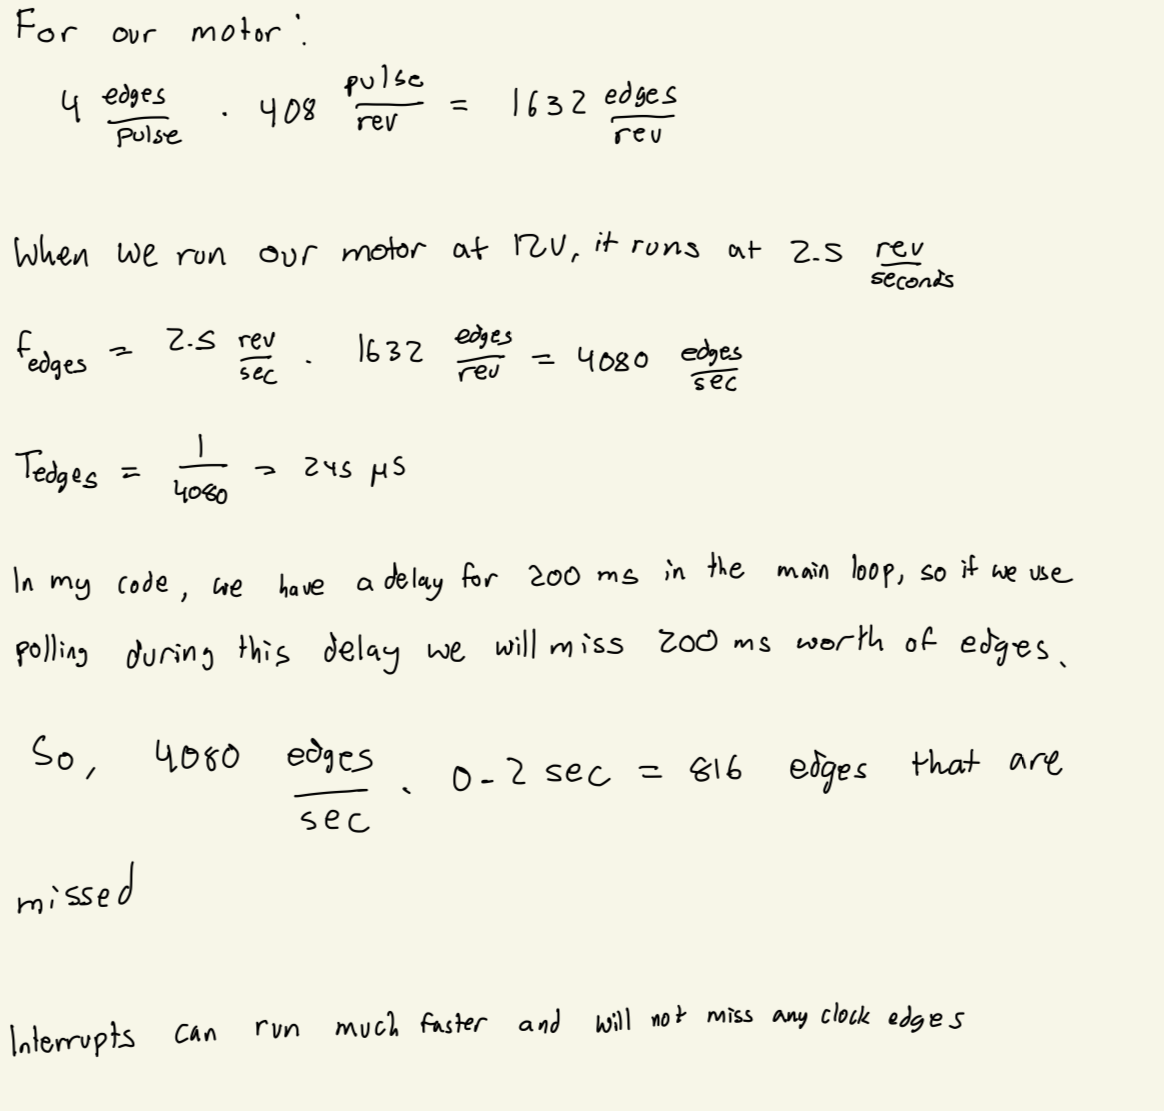 For our motor:
4 edges/pulse · 408 pulse/rev = 1632 edges/rev
When we run our motor at 12V, it runs at 2.5 rev/seconds
fedges = 2.5 rev/sec · 1632 edges/rev = 4080 edges/sec
Tedges = 1/4080 = 245 μs
In my code, we have a delay for 200 ms in the main loop, so if we use
polling during this delay we will miss 200 ms worth of edges.
So, 4080 edges/sec · 0.2 sec = 816 edges that are
missed
Interrupts can run much faster and will not miss any clock edges